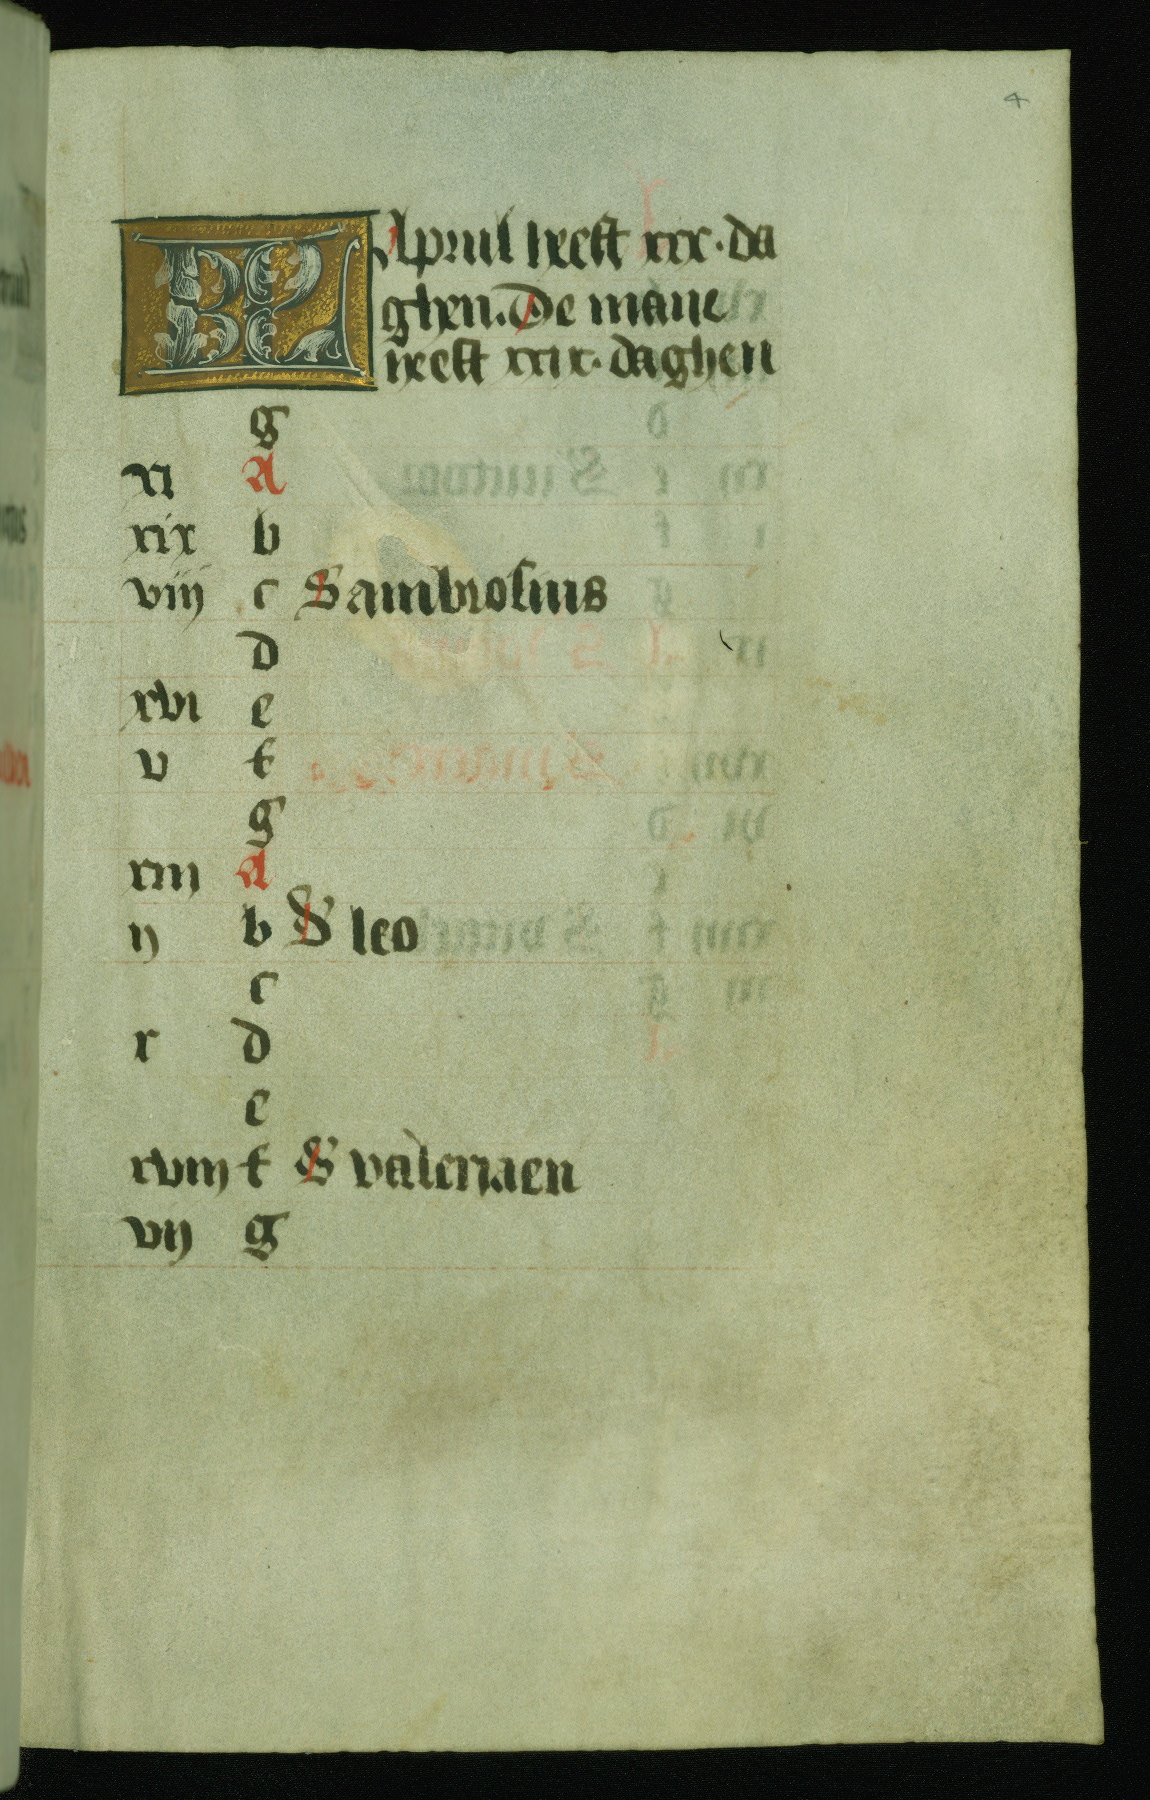 4
KL April heeft xxx. da
ghen. De mane
heeft xxix. daghen
g
xi A
xix b
viij c S ambrosius
d
xvi e
v f
g
xiij A
ij b S leo
c
x d
e
xviij f S valeriaen
vij g